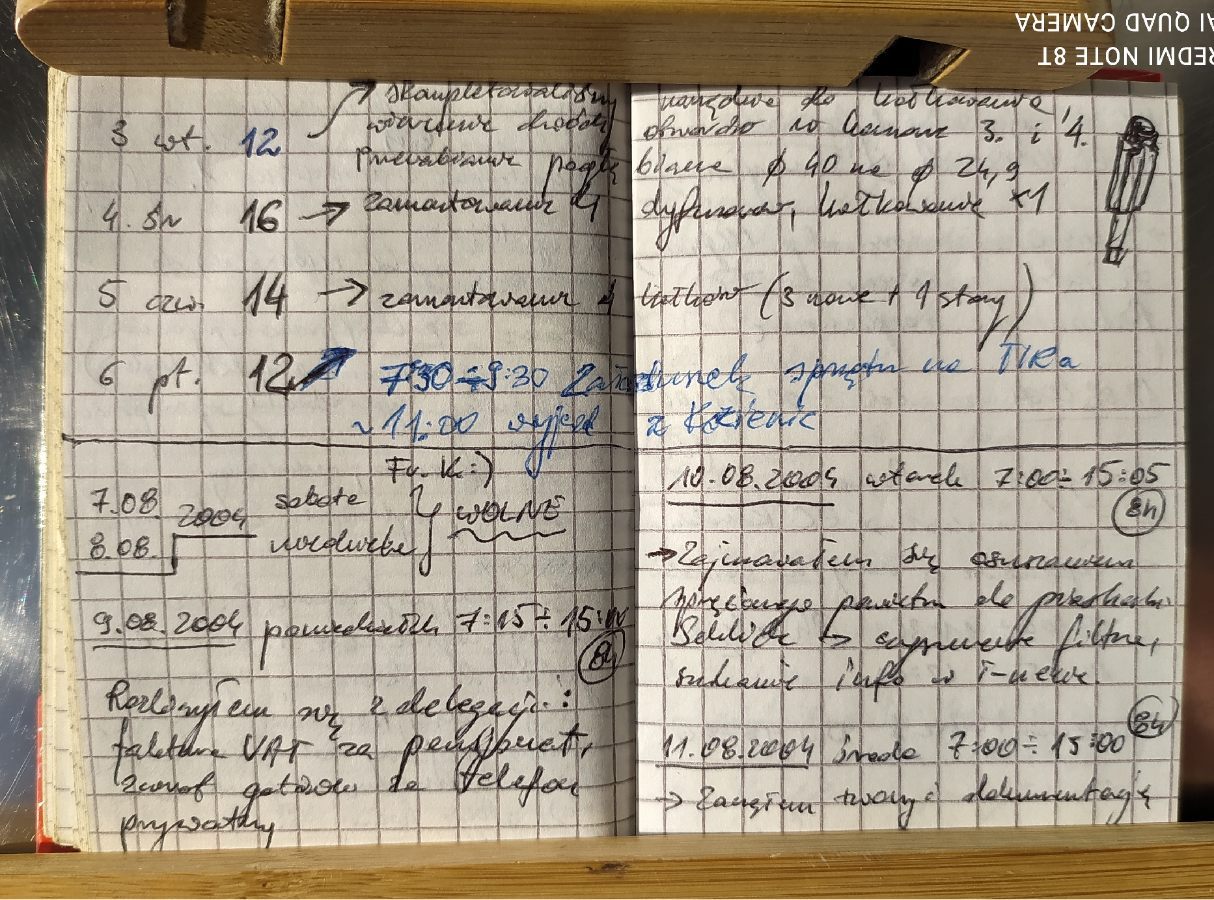 3 wt. 12
skompletowaliśmy
narzędzia do kołkowania,
otworów w komorze 3. i 4.
φ 40 na φ 24,9
4. śr 16 → zamontowanie 4 dyfuzorów, kołkowanie x1
5 czw. 14 → zamontowanie 4 kołków (3 nowe + 1 stary)
6 pt. 12 7:30 ÷ 9:30 Załadunek sprzętu na TIRa
~ 11:00 wyjazd z Kozienic
Fr. K :)
7.08.
8.08.
2004
sobota
niedziela
WOLNE
9.08.2004 poniedziałek 7:15 ÷
8h
Rozliczyłem się z delegacji:
faktura VAT za pensjonat,
zwrot gotówki za telefon
prywatny
10.08.2004 wtorek 7:00 ÷ 15:05
8h
→ Zajmowałem się osuszaniem
sprężonego powietrza do
filtra,
szukanie info w i-necie.
8h
11.08.2004 środa 7:00 ÷ 15:00
→ Zacząłem tworzyć dokumentację
REDMI NOTE 8T
AI QUAD CAMERA